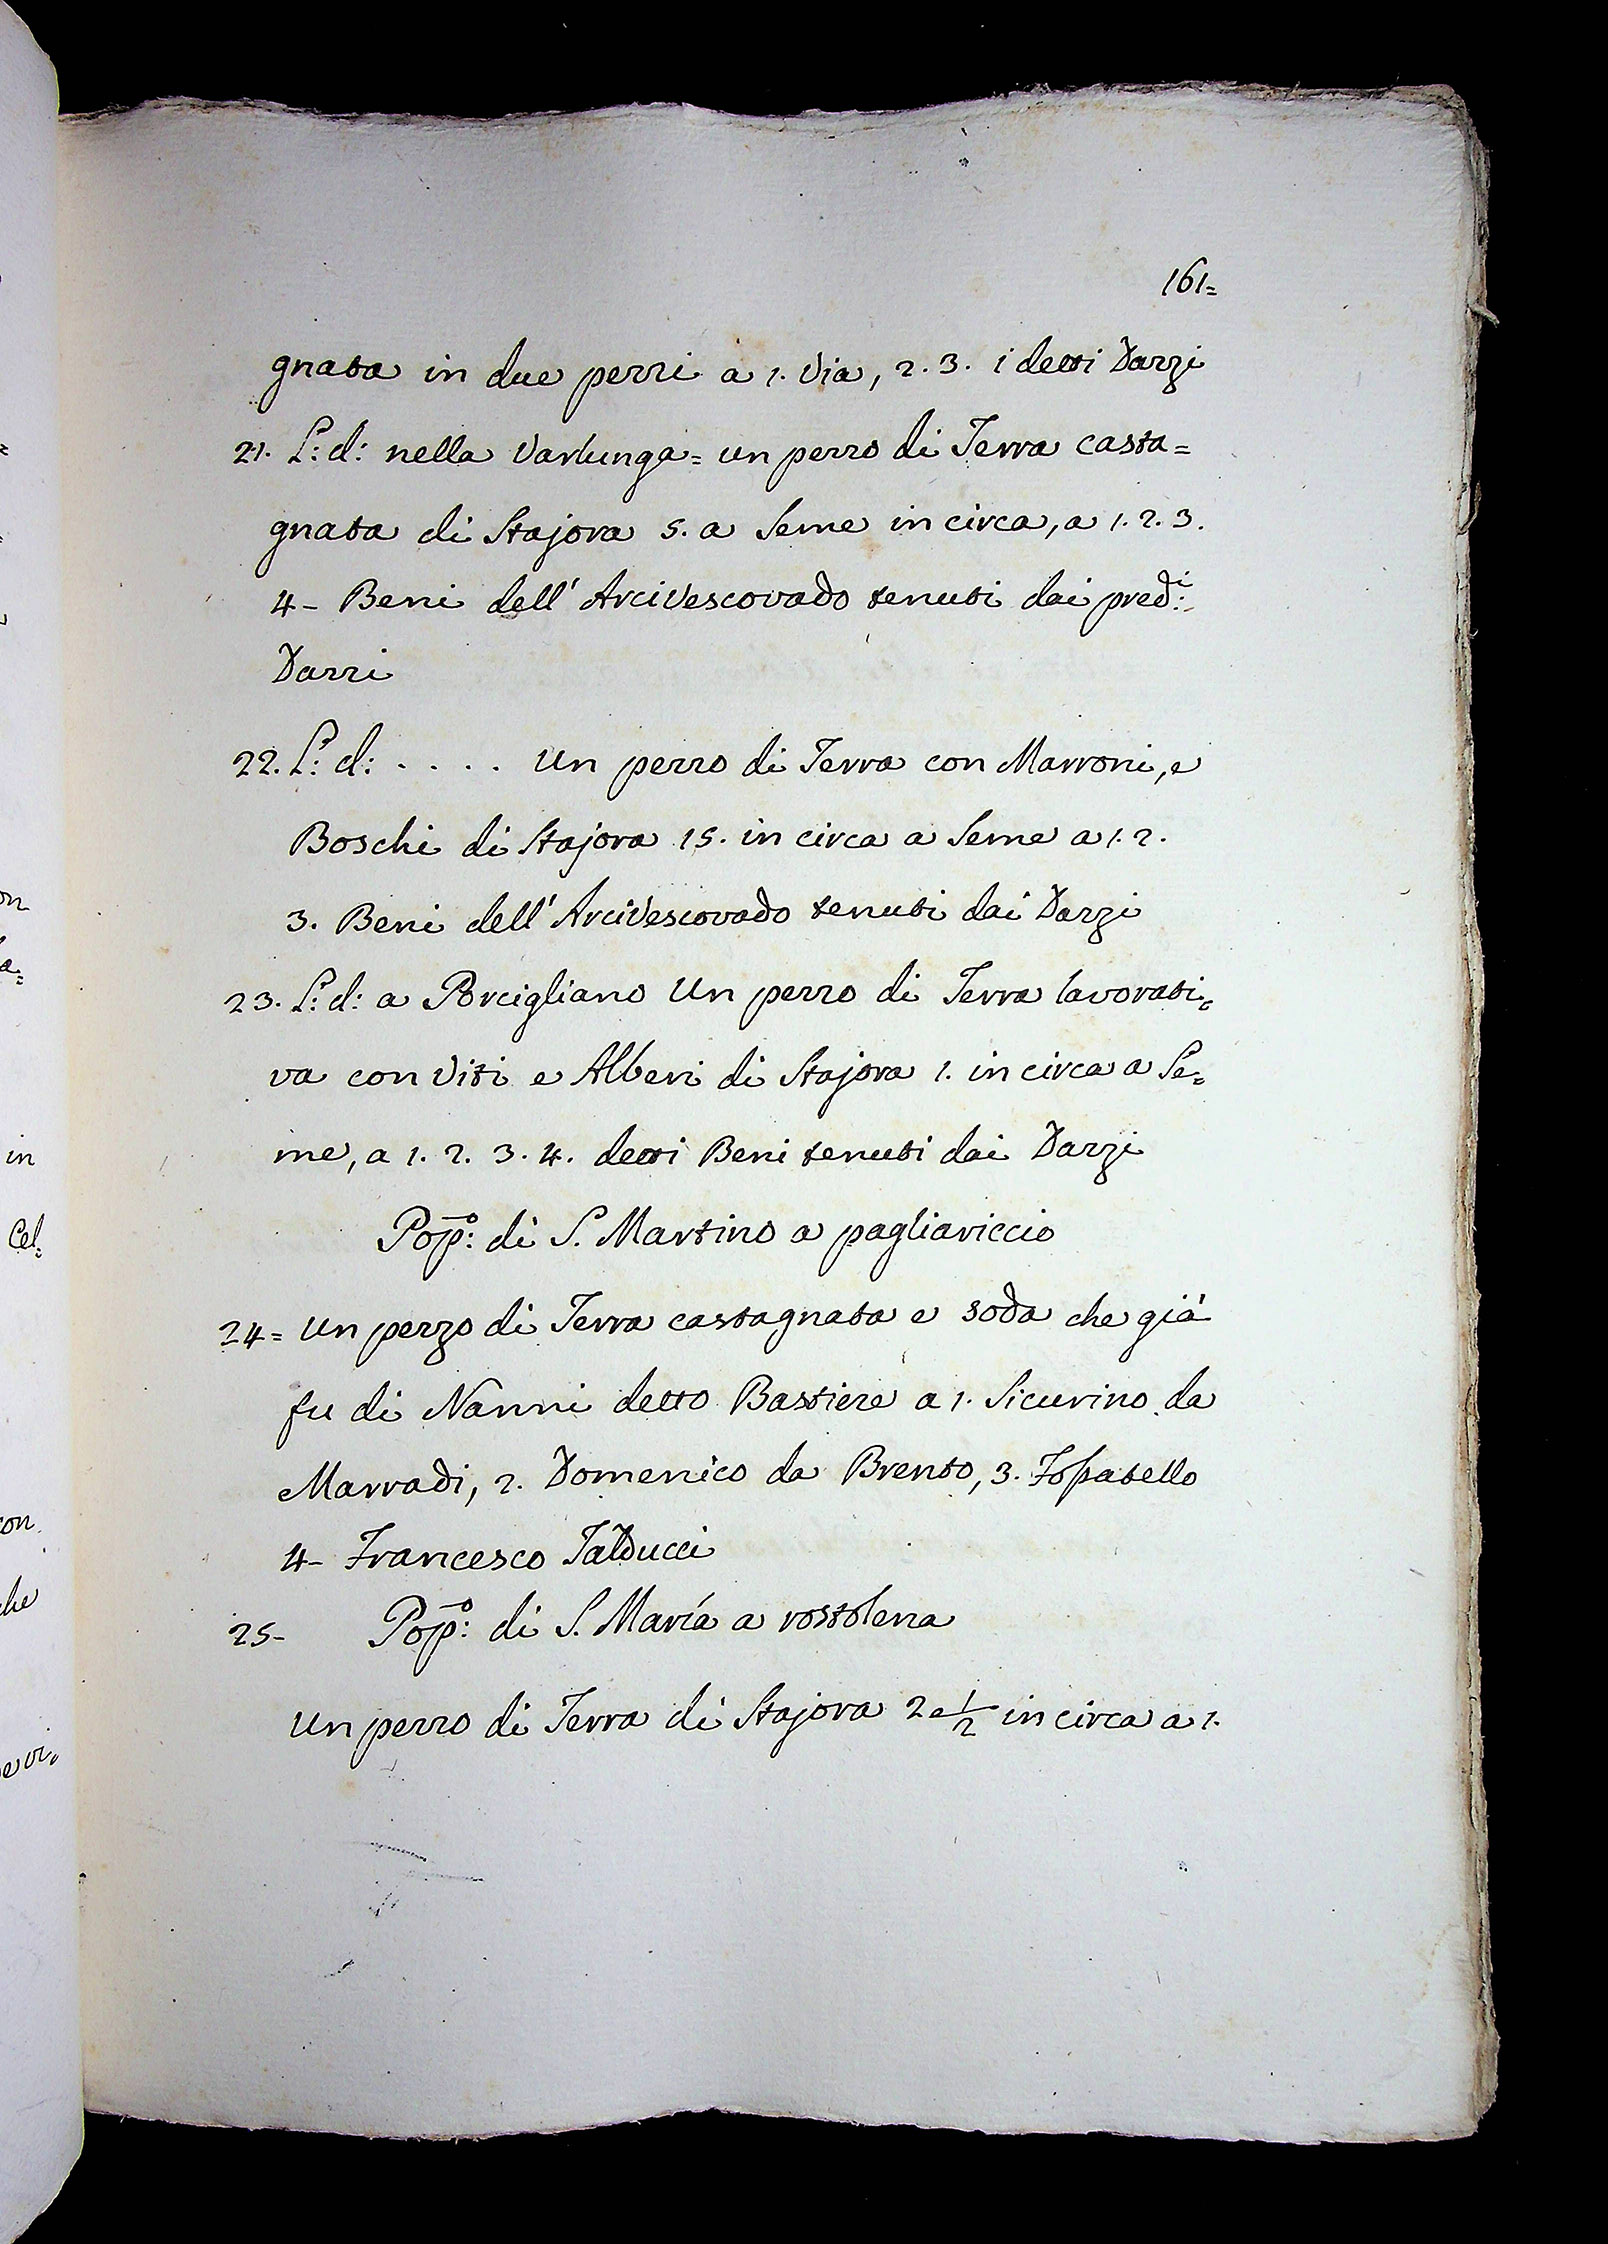 161=
gnata in due pezzi a 1. Via, 2. 3. i detti Darzi
21. L: d: nella Varlunga= un pezzo di Terra casta=
gnata di Stajora 5. a Seme in circa, a 1. 2. 3.
4- Beni dell' Arcivescovado tenuti dai pred:i
Dazzi
22. L: d: . . . . Un pezzo di Terra con Marroni, e
Boschi di Stajora 15. in circa a Seme a 1. 2.
3. Beni dell' Arcivescovado tenuti dai Darzi
23. L: d: a Porcigliano Un pezzo di Terra lavorati=
va con Viti e Alberi di Stajora 1. in circa a Se=
me, a 1. 2. 3. 4. detti Beni tenuti dai Darzi
Pop:o di S. Martino a pagliariccio
24= Un pezzo di Terra castagnata e soda che già
fu di Nanni detto Bastiere a 1. Sicurino da
Marradi, 2. Domenico da Brento, 3. Fossatello
4- Francesco Talducci
25- Pop:o di S. Maria a rostolena
Un pezzo di Terra di Stajora 2 e 1/2 in circa a 1.
in
Cel=
con
che